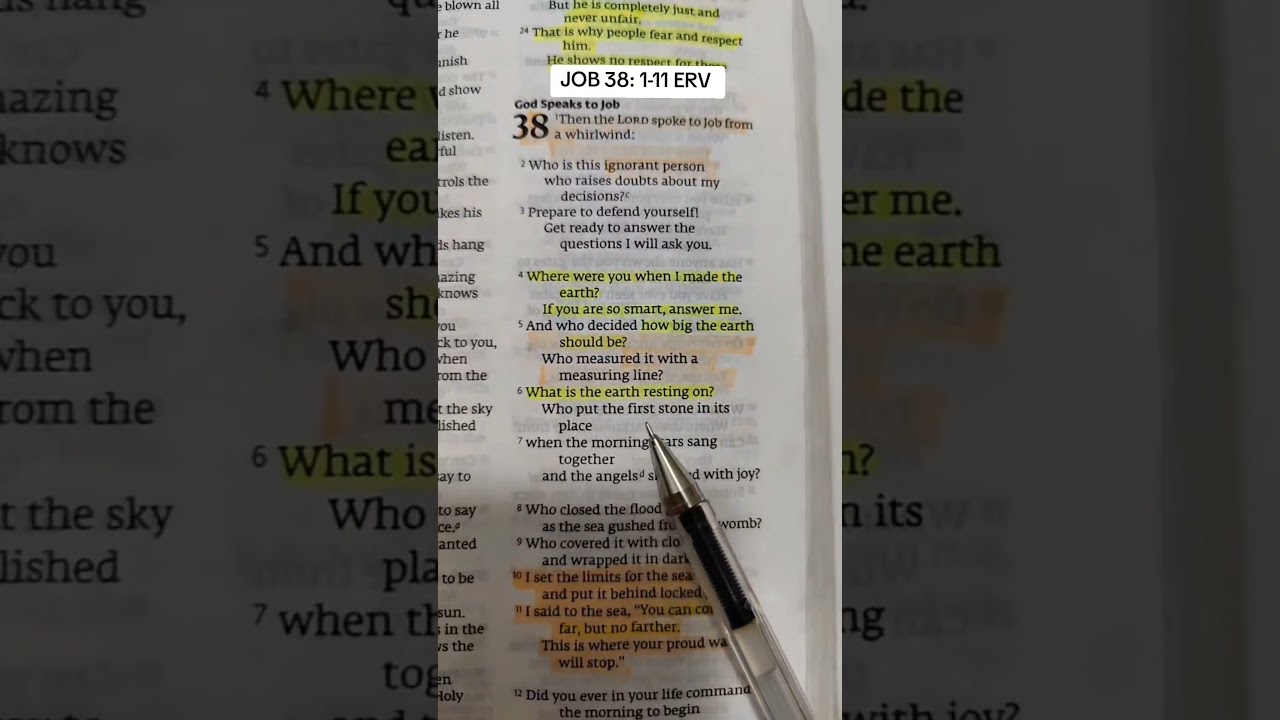 But he is completely just and
never unfair.
24 That is why people fear and respect
him.
He shows no respect for
JOB 38: 1-11 ERV
God Speaks to Job
38 1 Then the LORD spoke to Job from
a whirlwind:
2 Who is this ignorant person
who raises doubts about my
decisions?c
3 Prepare to defend yourself!
Get ready to answer the
questions I will ask you.
4 Where were you when I made the
earth?
If you are so smart, answer me.
5 And who decided how big the earth
should be?
Who measured it with a
measuring line?
6 What is the earth resting on?
Who put the first stone in its
place
7 when the morning ars sang
together
and the angelsd s d with joy?
8 Who closed the flood
as the sea gushed fr womb?
9 Who covered it with clo
and wrapped it in dark
10 I set the limits for the sea
and put it behind locked
11 I said to the sea, "You can co
far, but no farther.
This is where your proud wa
will stop."
12 Did you ever in your life command
the morning to begin
blown all
he
nish
d show
listen.
ful
trols the
kes his
ds hang
azing
knows
ou
ck to you,
when
rom the
t the sky
lished
ay to
to say
ce.g
anted
to be
sun.
s in the
ws the
en
Holy
azing
knows
ou
ck to you,
when
rom the
t the sky
lished
4 Where
ea
If you
5 And wh
sh
Who
me
6 What is
Who
pla
7 when th
tog
de the
er me.
e earth
n?
n its
ng
with joy?